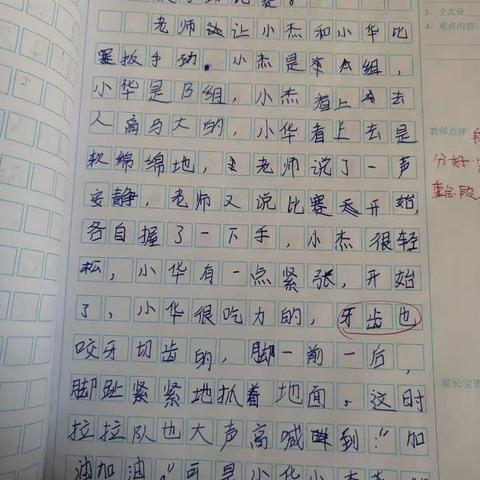 老师让小杰和小华比
赛扳手劲。小杰是A组，
小华是B组，小杰看上去
人高马大的，小华看上去是
软绵绵地，老师说了一声
安静，老师又说比赛开始，
各自握了一下手，小杰很轻
松，小华有一点紧张，开始
了，小华很吃力的，牙齿也
咬牙切齿的，脚一前一后，
脚趾紧紧地抓着地面。这时
拉拉队也大声高喊到："加
油加油。"可是小华小杰
3．全文分
4．重点内容：
教师点评：
分好
重点段
家长宝